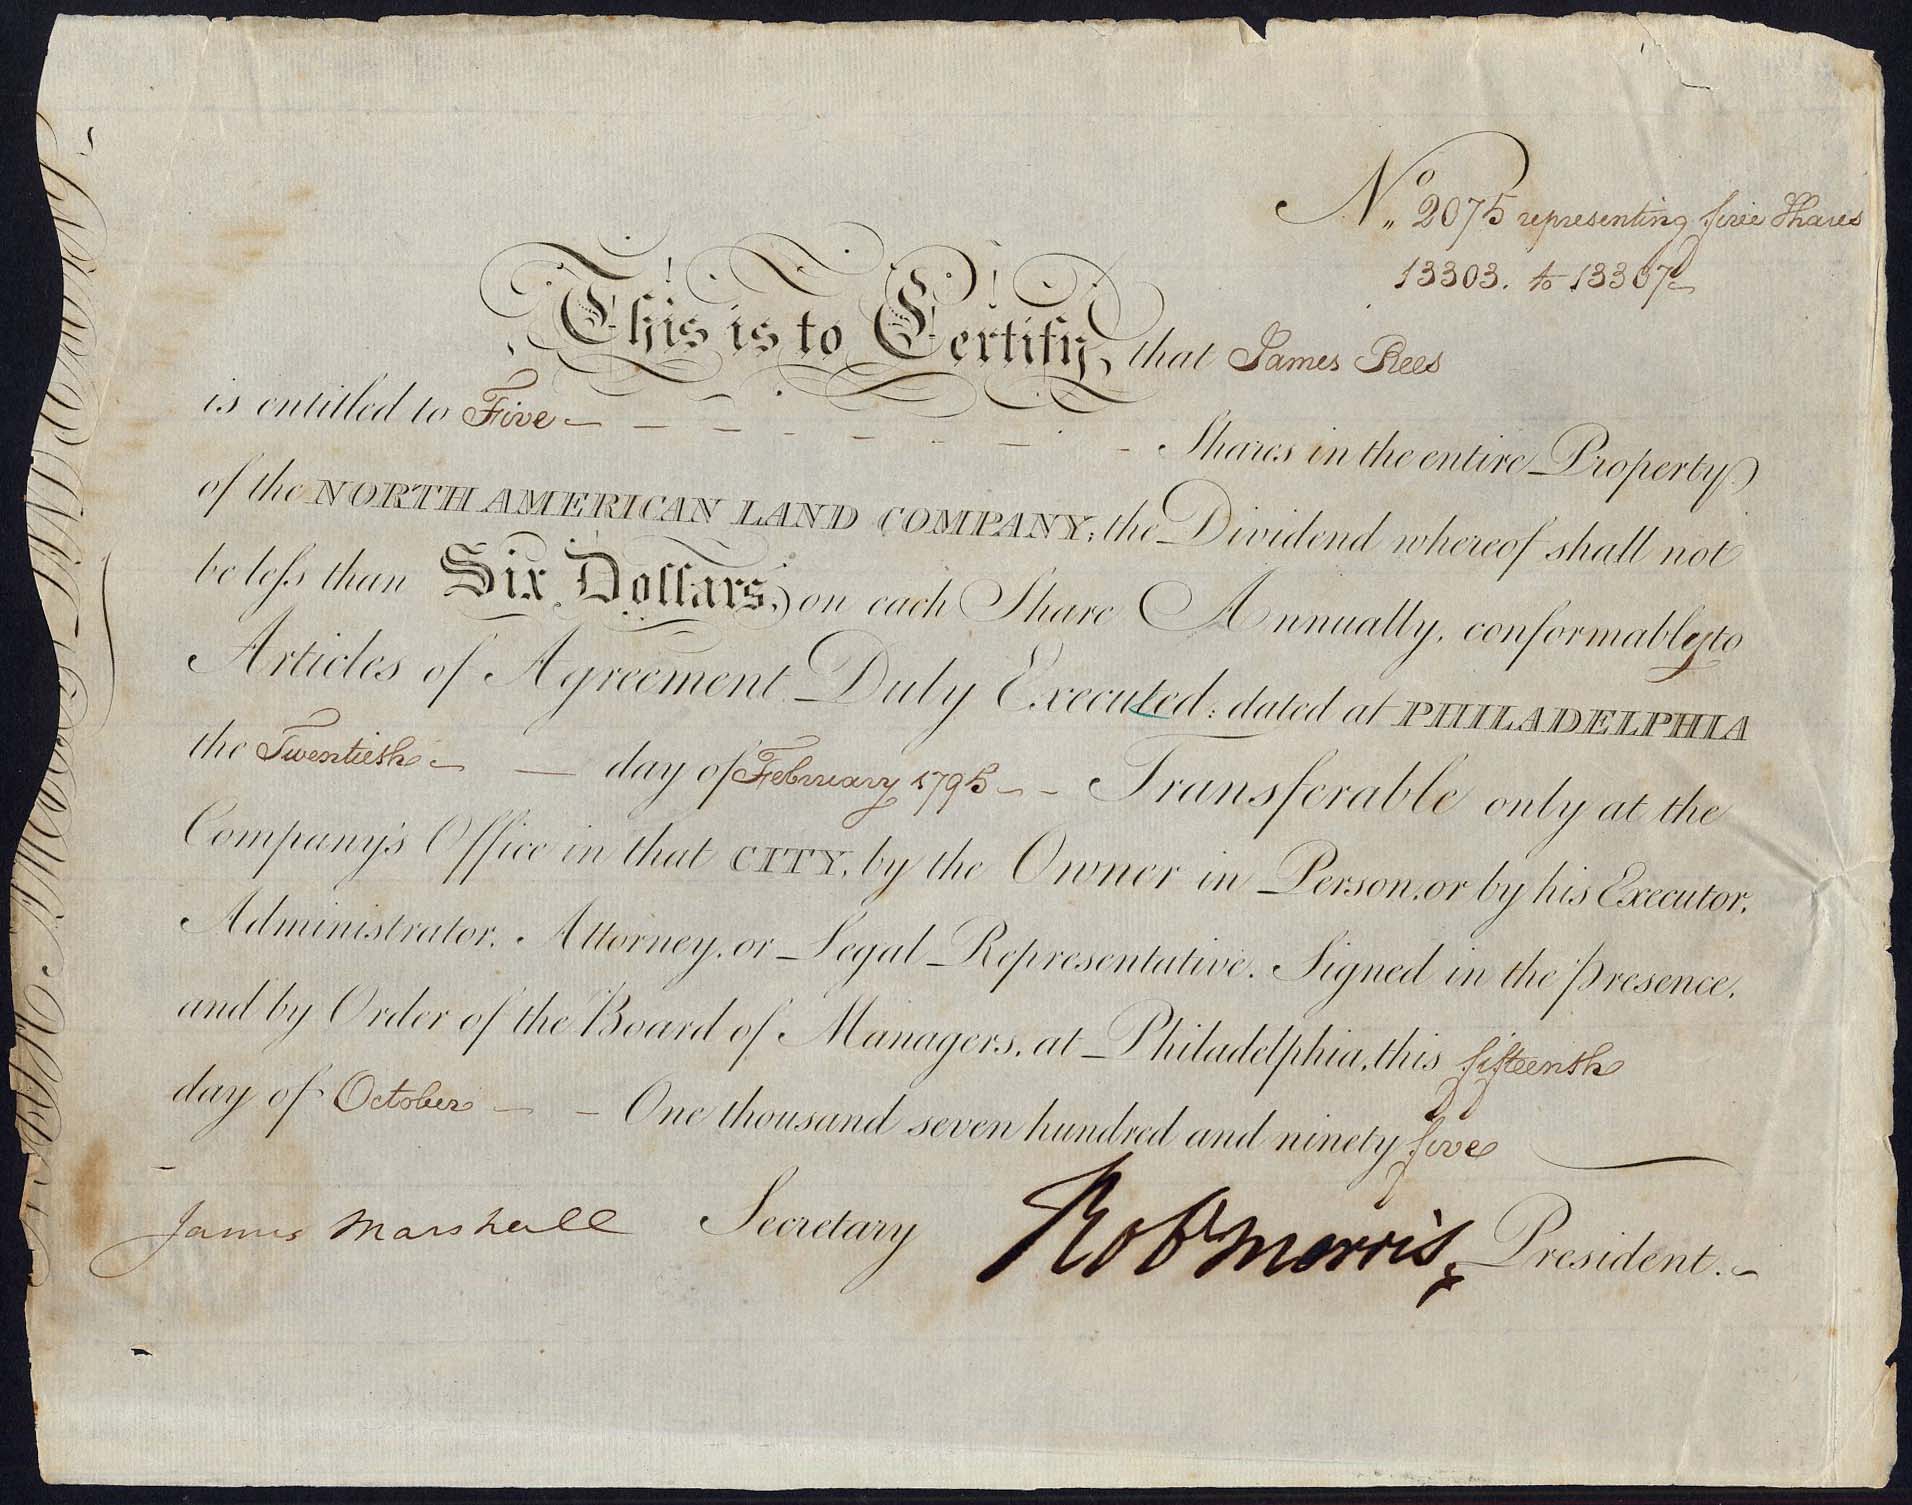 No. 2075 representing five Shares
13303. to 13307
This is to Certify, that James Rees
is entitled to Five Shares in the entire Property
of the NORTH AMERICAN LAND COMPANY; the Dividend whereof shall not
be less than Six Dollars, on each Share Annually, conformably to
Articles of Agreement Duly Executed: dated at PHILADELPHIA
the Twentieth day of February 1795 Transferable only at the
Company's Office in that CITY, by the Owner in Person, or by his Executor,
Administrator, Attorney, or Legal Representative. Signed in the presence,
and by Order of the Board of Managers, at Philadelphia, this fifteenth
day of October One thousand seven hundred and ninety five
James Marshall Secretary Robt Morris, President.